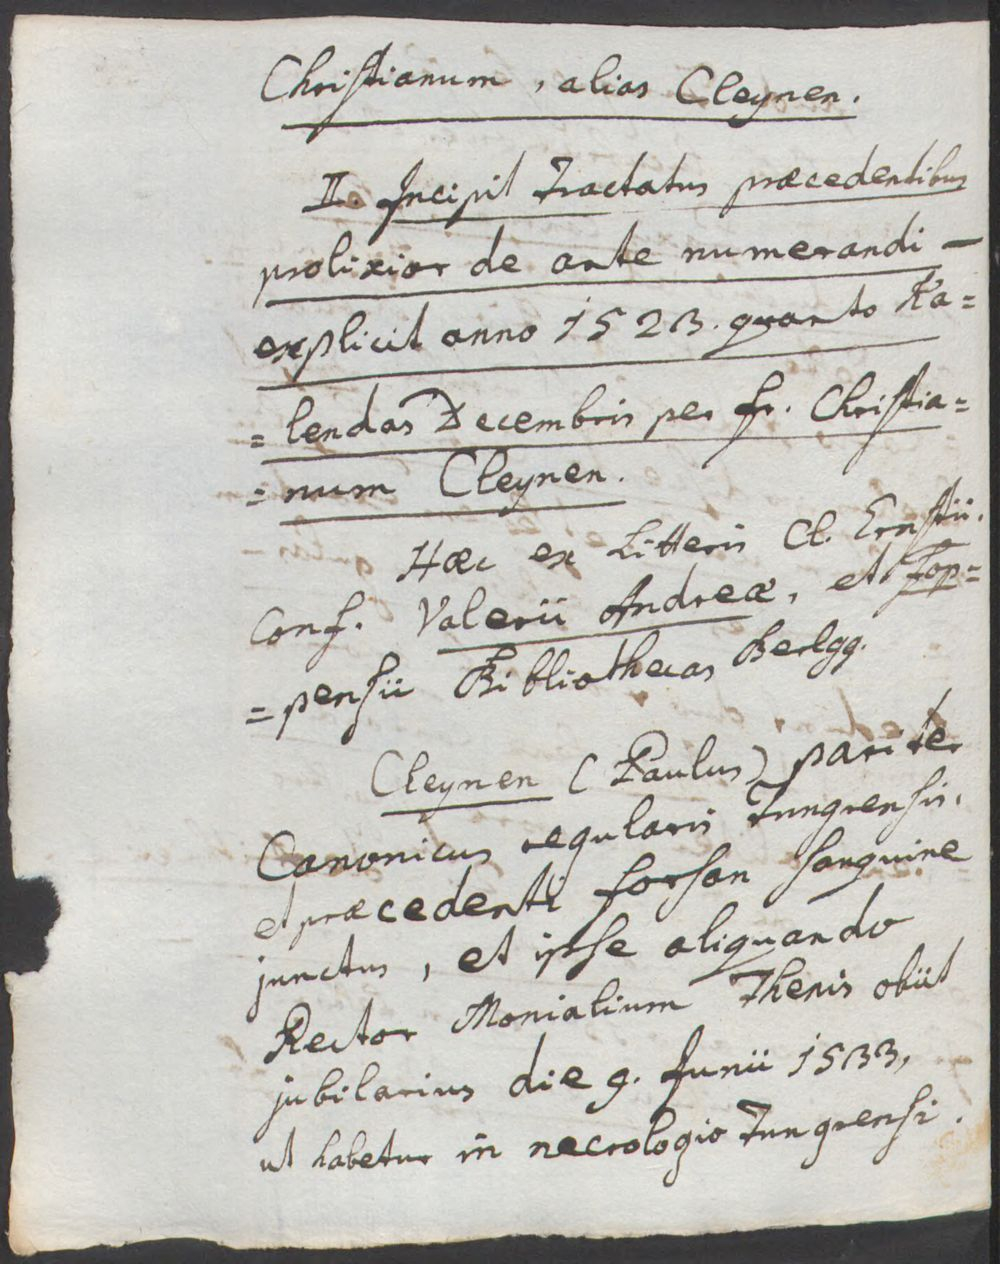 Christianum, alias Cleynen.
II. Incipit Tractatus præcedentibus
prolixior de arte numerandi —
explicit anno 1523. quarto Ka=
=lendas Decembris per fr. Christia=
=num Cleynen.
Hæc ex Litteris Cl. Ernstii.
Conf. Valerii Andreæ, et Fop=
=pensii Bibliothecas Belgg.
Cleynen (Paulus) pariter
Canonicus regularis Tungrensis,
et præcedenti forsan sanguine
junctus, et ipse aliquando
Rector Monialium Thenis obiit
jubilarius die 9. Junii 1533,
ut habetur in necrologio Tungrensi.